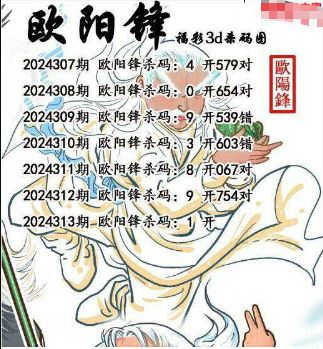 欧阳锋
福彩3d杀码图
2024307期 欧阳锋杀码：4 开579对
2024308期 欧阳锋杀码：0 开654对
2024309期 欧阳锋杀码：9 开539错
2024310期 欧阳锋杀码：3 开603错
2024311期 欧阳锋杀码：8 开067对
2024312期 欧阳锋杀码：9 开754对
2024313期 欧阳锋杀码：1 开
歐陽鋒